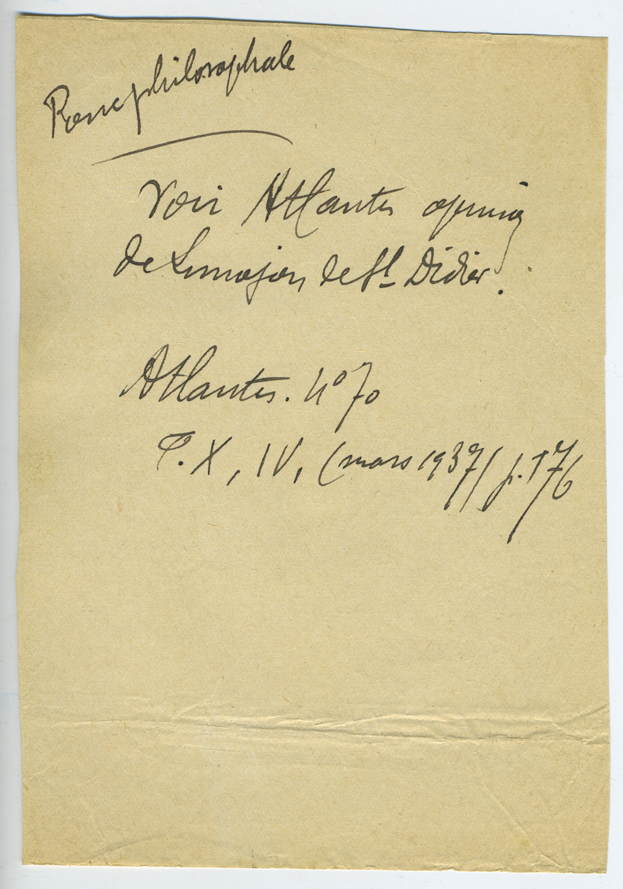 philosophale
Voir Atlantis
de Limojon de St Didier.
Atlantis. n° 70
T. X, IV, (mars 1937) p. 176